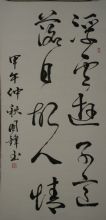 浮雲遊子意
落日故人情
甲午仲秋國鋒書